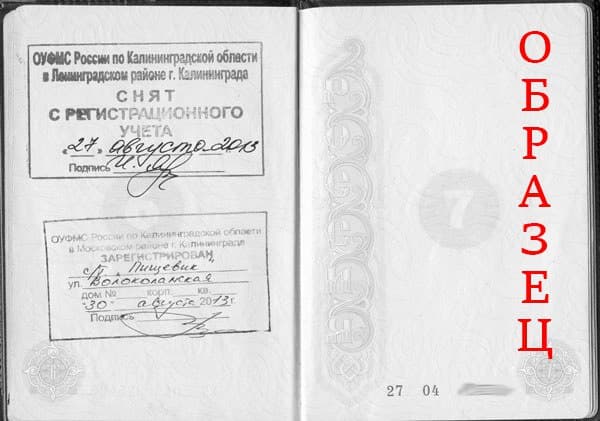 ОУФМС России по Калининградской области
в Ленинградском районе г. Калининграда
СНЯТ
С РЕГИСТРАЦИОННОГО
УЧЕТА
«27» августа 2013
Подпись
ОУФМС России по Калининградской области
в Московском районе г. Калининграда
ЗАРЕГИСТРИРОВАН
с/т „Пищевик"
ул. Волоколамская
дом № корп. кв.
«30» августа 2013 г.
Подпись
7
27 04
ОБРАЗЕЦ